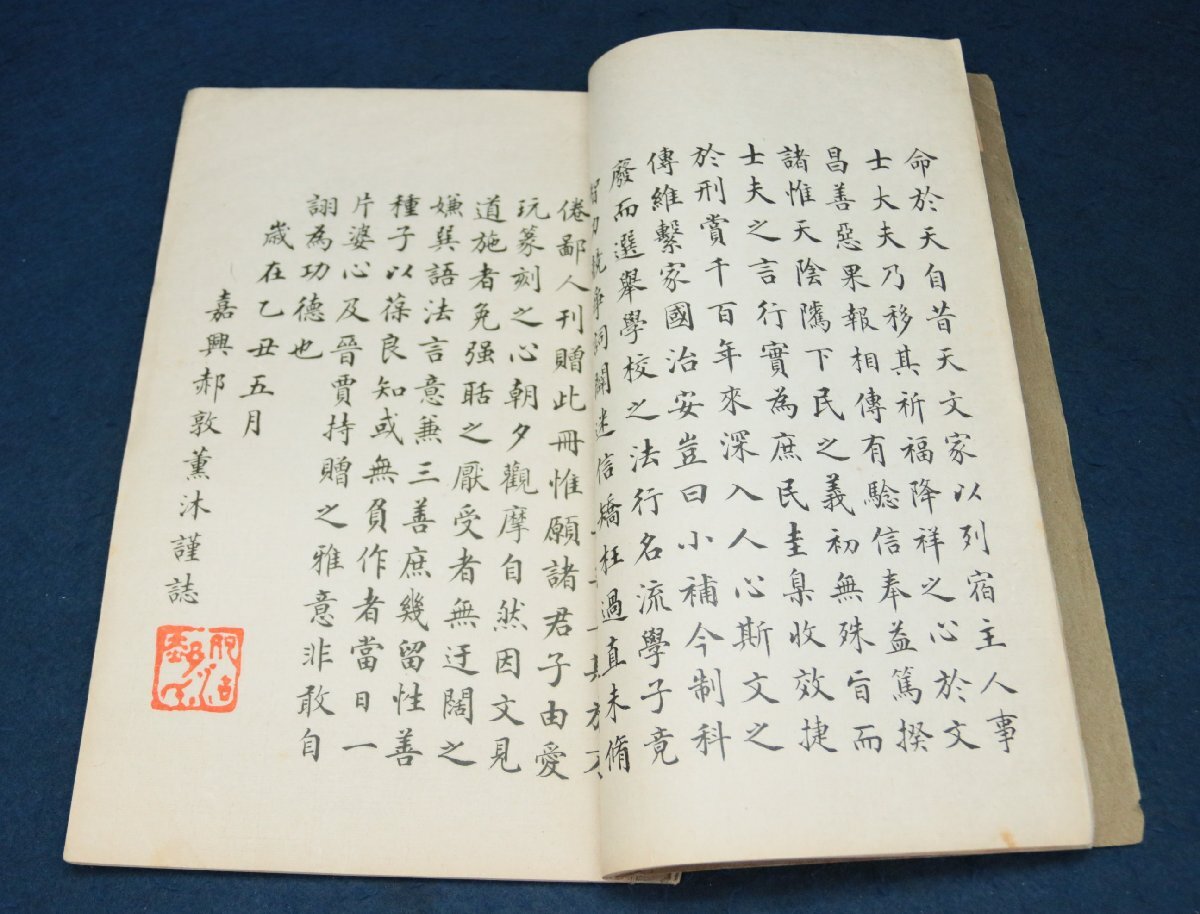 命於天自昔天文家以列宿主人事
士大夫乃移其祈福降祥之心於文
昌善惡果報相傳有驗信奉益篤揆
諸惟天陰隲下民之義初無殊旨而
士夫之言行實為庶民圭臬收效捷
於刑賞千百年來深入人心斯文之
傳維繫家國治安豈曰小補今制科
廢而選舉學校之法行名流學子竟
迷信矯枉過直未脩
倦鄙人刊贈此冊惟願諸君子由愛
玩篆刻之心朝夕觀摩自然因文見
道施者免强聒之厭受者無迂闊之
嫌巽語法言意兼三善庶幾留性善
種子以葆良知或無負作者當日一
片婆心及晉賈持贈之雅意非敢自
詡為功德也
歲在乙丑五月
嘉興郝敦薰沐謹誌